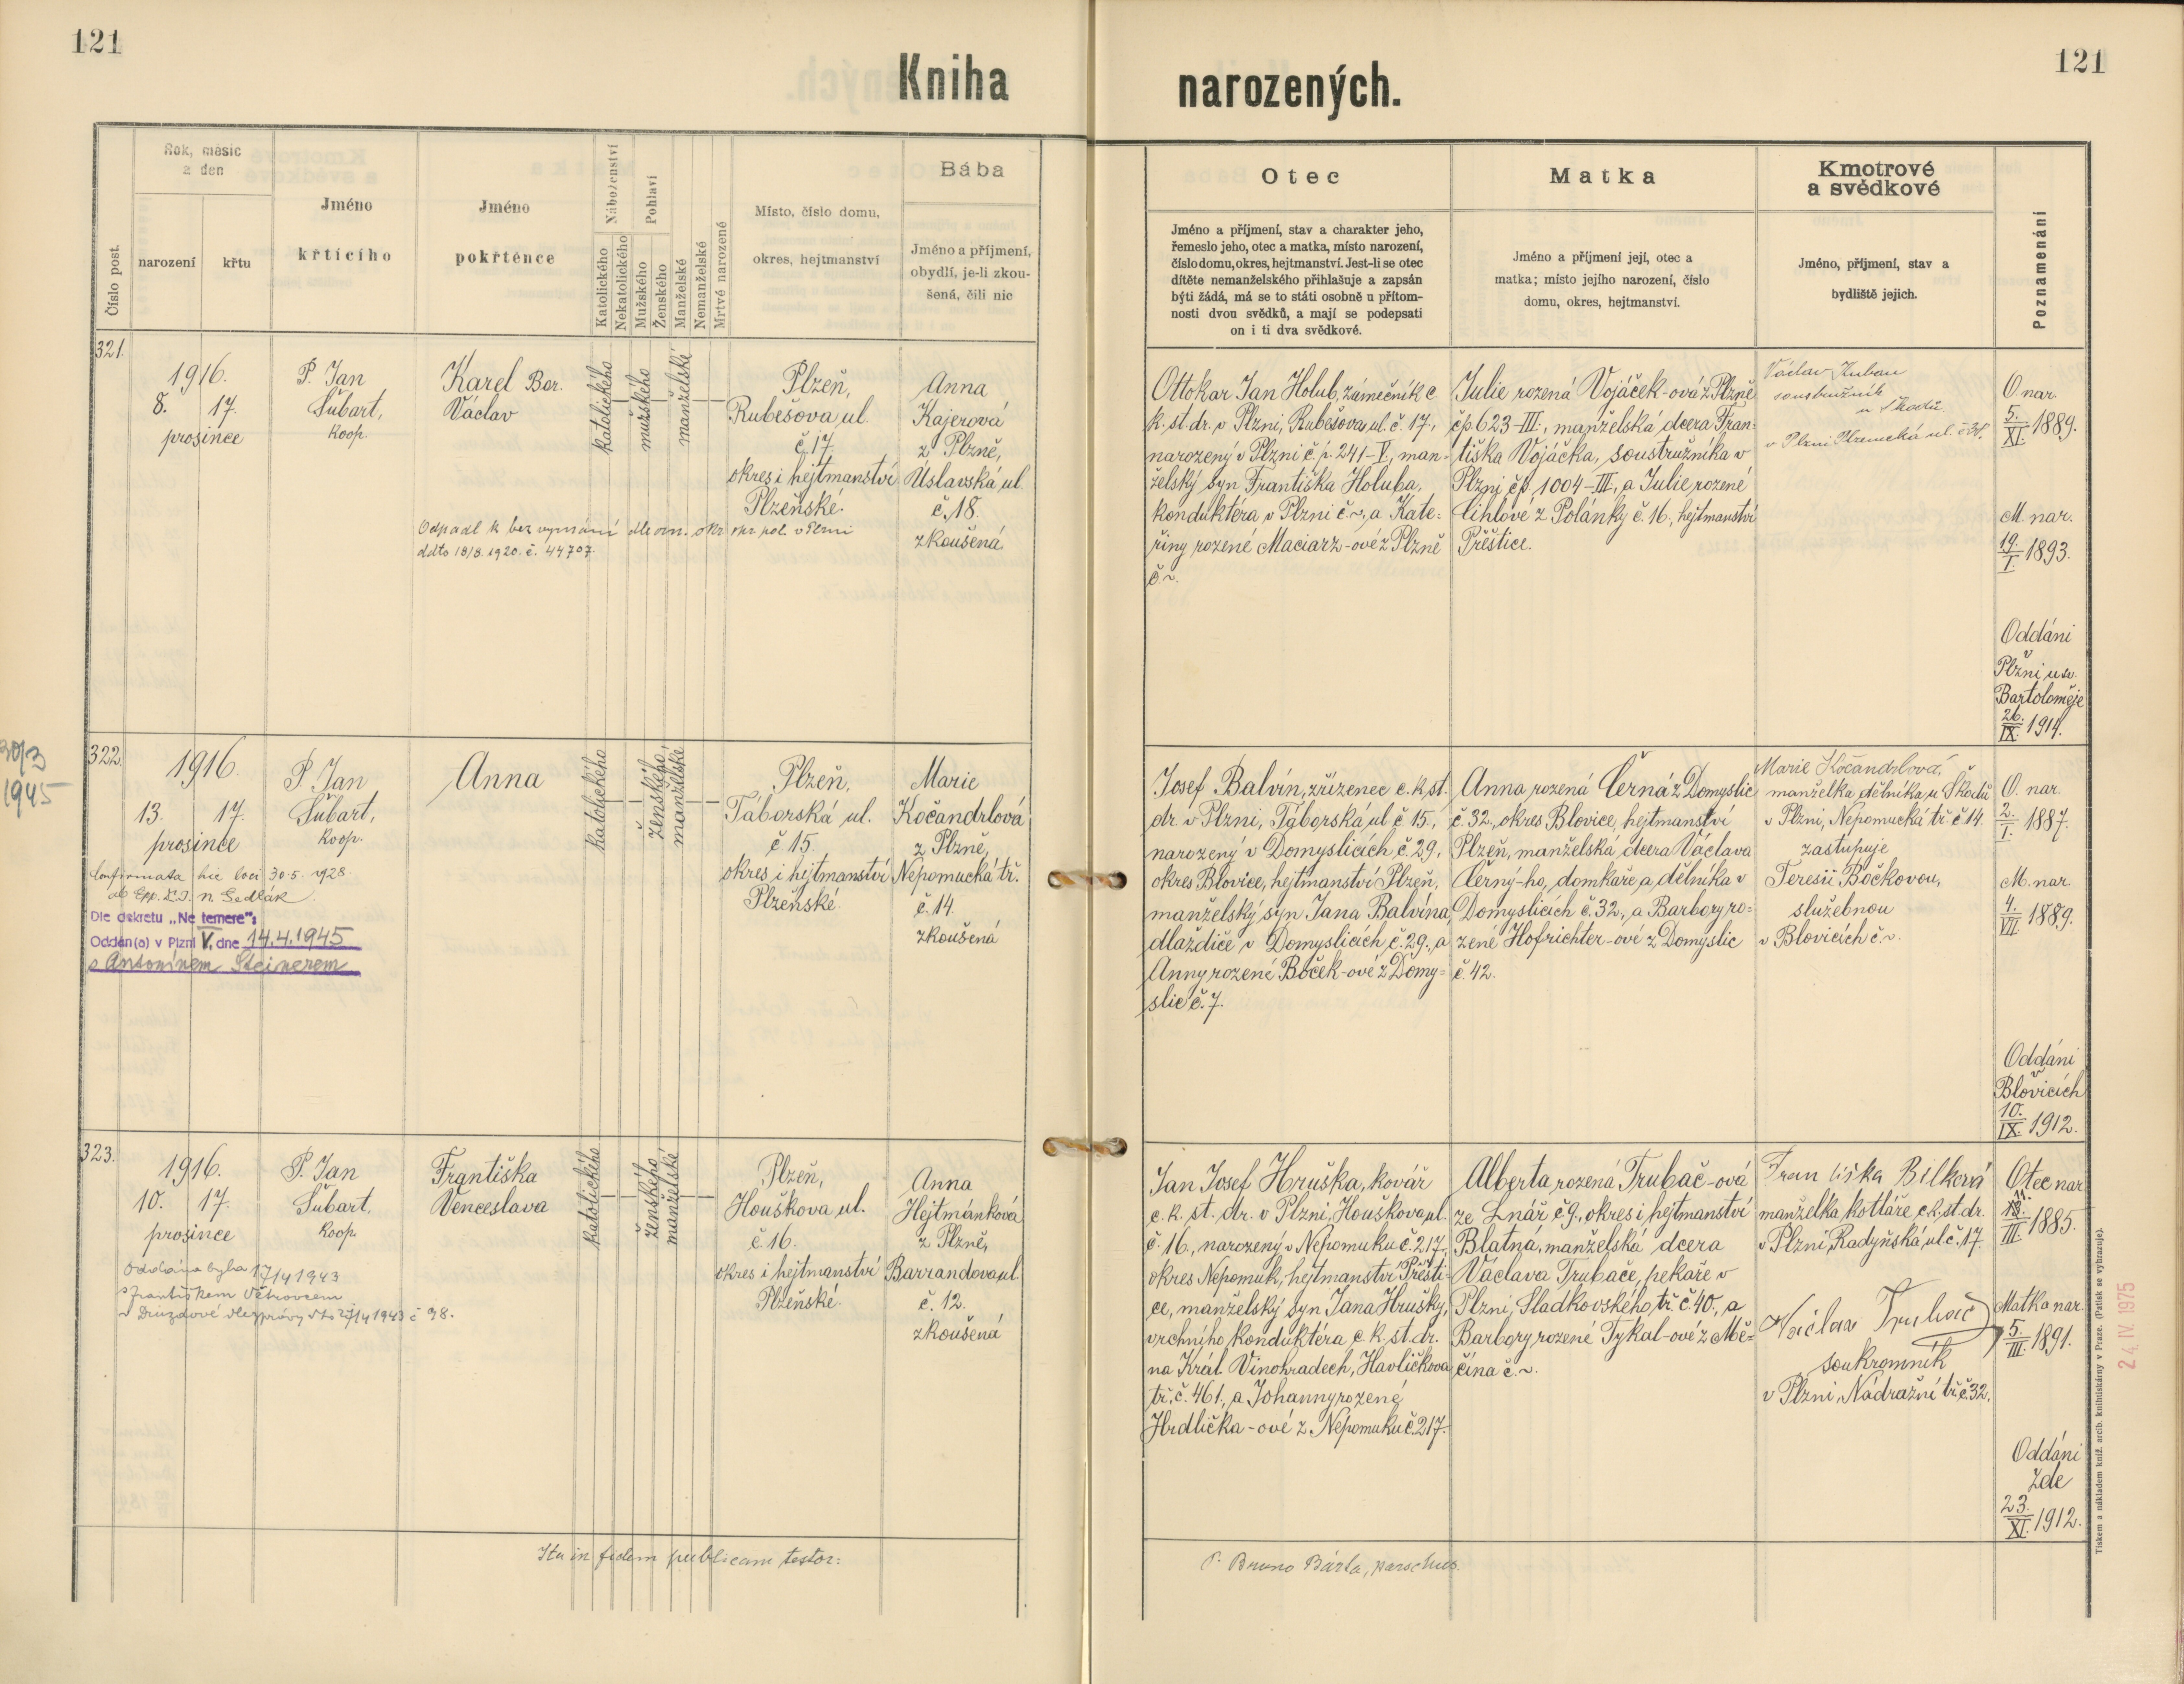 121
121
Kniha
narozených.
Číslo post.
Rok, měsíc
a den
narození
křtu
Jméno
křtícího
Jméno
pokřtěnce
Náboženství
Katolického
Nekatolického
Pohlaví
Mužského
Ženského
Manželské
Nemanželské
Mrtvě narozené
Místo, číslo domu,
okres, hejtmanství
Bába
Jméno a příjmení,
obydlí, je-li zkou-
šená, čili nic
Otec
Jméno a příjmení, stav a charakter jeho,
řemeslo jeho, otec a matka, místo narození,
číslo domu, okres, hejtmanství. Jest-li se otec
dítěte nemanželského přihlašuje a zapsán
býti žádá, má se to státi osobně u přítom-
nosti dvou svědků, a mají se podepsati
on i ti dva svědkové.
Matka
Jméno a příjmení její, otec a
matka; místo jejího narození, číslo
domu, okres, hejtmanství.
Kmotrové
a svědkové
Jméno, příjmení, stav a
bydliště jejich.
Poznamenání
321.
1916.
8. 17.
prosince
P. Jan
Šubart,
koop.
Karel Bor.
Václav
katolického
mužského
manželské
Plzeň,
Rubešova ul.
č. 17.
okres i hejtmanství
Plzeňské.
Anna
Kajerová
z Plzně,
Úslavská ul.
č. 18.
zkoušená.
Odpadl k bez vyznání dle ozn. okr. pol. v Plzni
ddto 18/8. 1920. č. 44707.
Ottokar Jan Holub, zámečník c.
k. st. dr. v Plzni, Rubešova ul. č. 17.,
narozený v Plzni č. p. 241-V., man-
želský syn Františka Holuba,
konduktéra v Plzni č. ~, a Kate-
řiny rozené Maciarz-ové z Plzně
č. ~.
Julie rozená Vojáček-ová z Plzně
čp. 623-III., manželská dcera Fran-
tiška Vojáčka, soustružníka v
Plzni čp 1004-III., a Julie rozené
Cihlové z Polánky č. 16., hejtmanství
Přeštice.
Václav
soustružník
u Škodů
v Plzni
O. nar.
5./XI. 1889.
M. nar.
19./I. 1893.
Oddáni
v
Plzni u sv.
Bartoloměje
26./IX. 1914.
30/3
1945
322.
1916.
13. 17.
prosince
P. Jan
Šubart,
koop.
Anna
katolického
ženského
manželské
Plzeň,
Táborská ul.
č 15.
okres i hejtmanství
Plzeňské.
Marie
Kočandrlová
z Plzně,
Nepomucká tř.
č. 14.
zkoušená
Confirmata hic loci 30.5. 1928.
ab Epp. Sedlák.
Dle dekretu „Ne temere":
Oddán(a) v Plzni V. dne 14.4.1945
s Antonínem Steinerem
Josef Balvín, zřízenec c. k. st.
dr. v Plzni, Táborská ul č 15.,
narozený v Domyslicích č. 29.,
okres Blovice, hejtmanství Plzeň,
manželský syn Jana Balvína,
dlaždiče v Domyslicích č. 29., a
Anny rozené Boček-ové z Domy-
slic č. 7.
Anna rozená Černá z Domyslic
č. 32., okres Blovice, hejtmanství
Plzeň, manželská dcera Václava
Černý-ho, domkaře a dělníka v
Domyslicích č. 32., a Barbory ro-
zené Hofrichter-ové z Domyslic
č. 42.
Marie Kočandrlová,
manželka dělníka u Škodů
v Plzni, Nepomucká tř. č 14.
zastupuje
Teresii Bočkovou,
služebnou
v Blovicích č. ~.
O. nar.
2./I. 1887.
M. nar.
4./VII. 1889.
Oddáni
v
Blovicích
10./IX. 1912.
323.
1916.
10. 17.
prosince
P. Jan
Šubart,
koop.
Františka
Venceslava
katolického
ženského
manželské
Plzeň,
Houškova ul.
č. 16.
okres i hejtmanství
Plzeňské.
Anna
Hejtmánková
z Plzně,
Barrandova ul.
č. 12.
zkoušená
Oddána byla 17/4 1943
s Františkem Větrovcem
v Druzdové dle zprávy dto 27/4 1943 č 98.
Jan Josef Hruška, kovář
c. k. st. dr. v Plzni, Houškova ul.
č. 16., narozený v Nepomuku č. 217,
okres Nepomuk, hejtmanství Přešti-
ce, manželský syn Jana Hrušky,
vrchního konduktéra c. k. st. dr.
na Král. Vinohradech, Havlíčkova
tř. č. 461., a Johanny rozené
Hrdlička-ové z Nepomuku č. 217.
Alberta rozená Trubač-ová
ze Lnář č 9., okres i hejtmanství
Blatná, manželská dcera
Václava Trubače, pekaře v
Plzni, Sladkovského tř. č. 40., a
Barbory rozené Tykal-ové z Mě-
čína č. ~.
Františka Bílková
manželka kotláře c. k. st. dr.
v Plzni, Radyňská ul. č. 17.
Václav Trubač
soukromník
v Plzni, Nádražní tř. č. 32.
Otec nar.
11./III. 1885.
Matka nar.
5./III. 1891.
Oddáni
zde
23./XI. 1912.
Ita in fidem publicam testor:
P. Bruno Bárta, parochus.
Tiskem a nákladem kníž. arcib. knihtiskárny v Praze. (Patisk se vyhrazuje).
24. IV. 1975